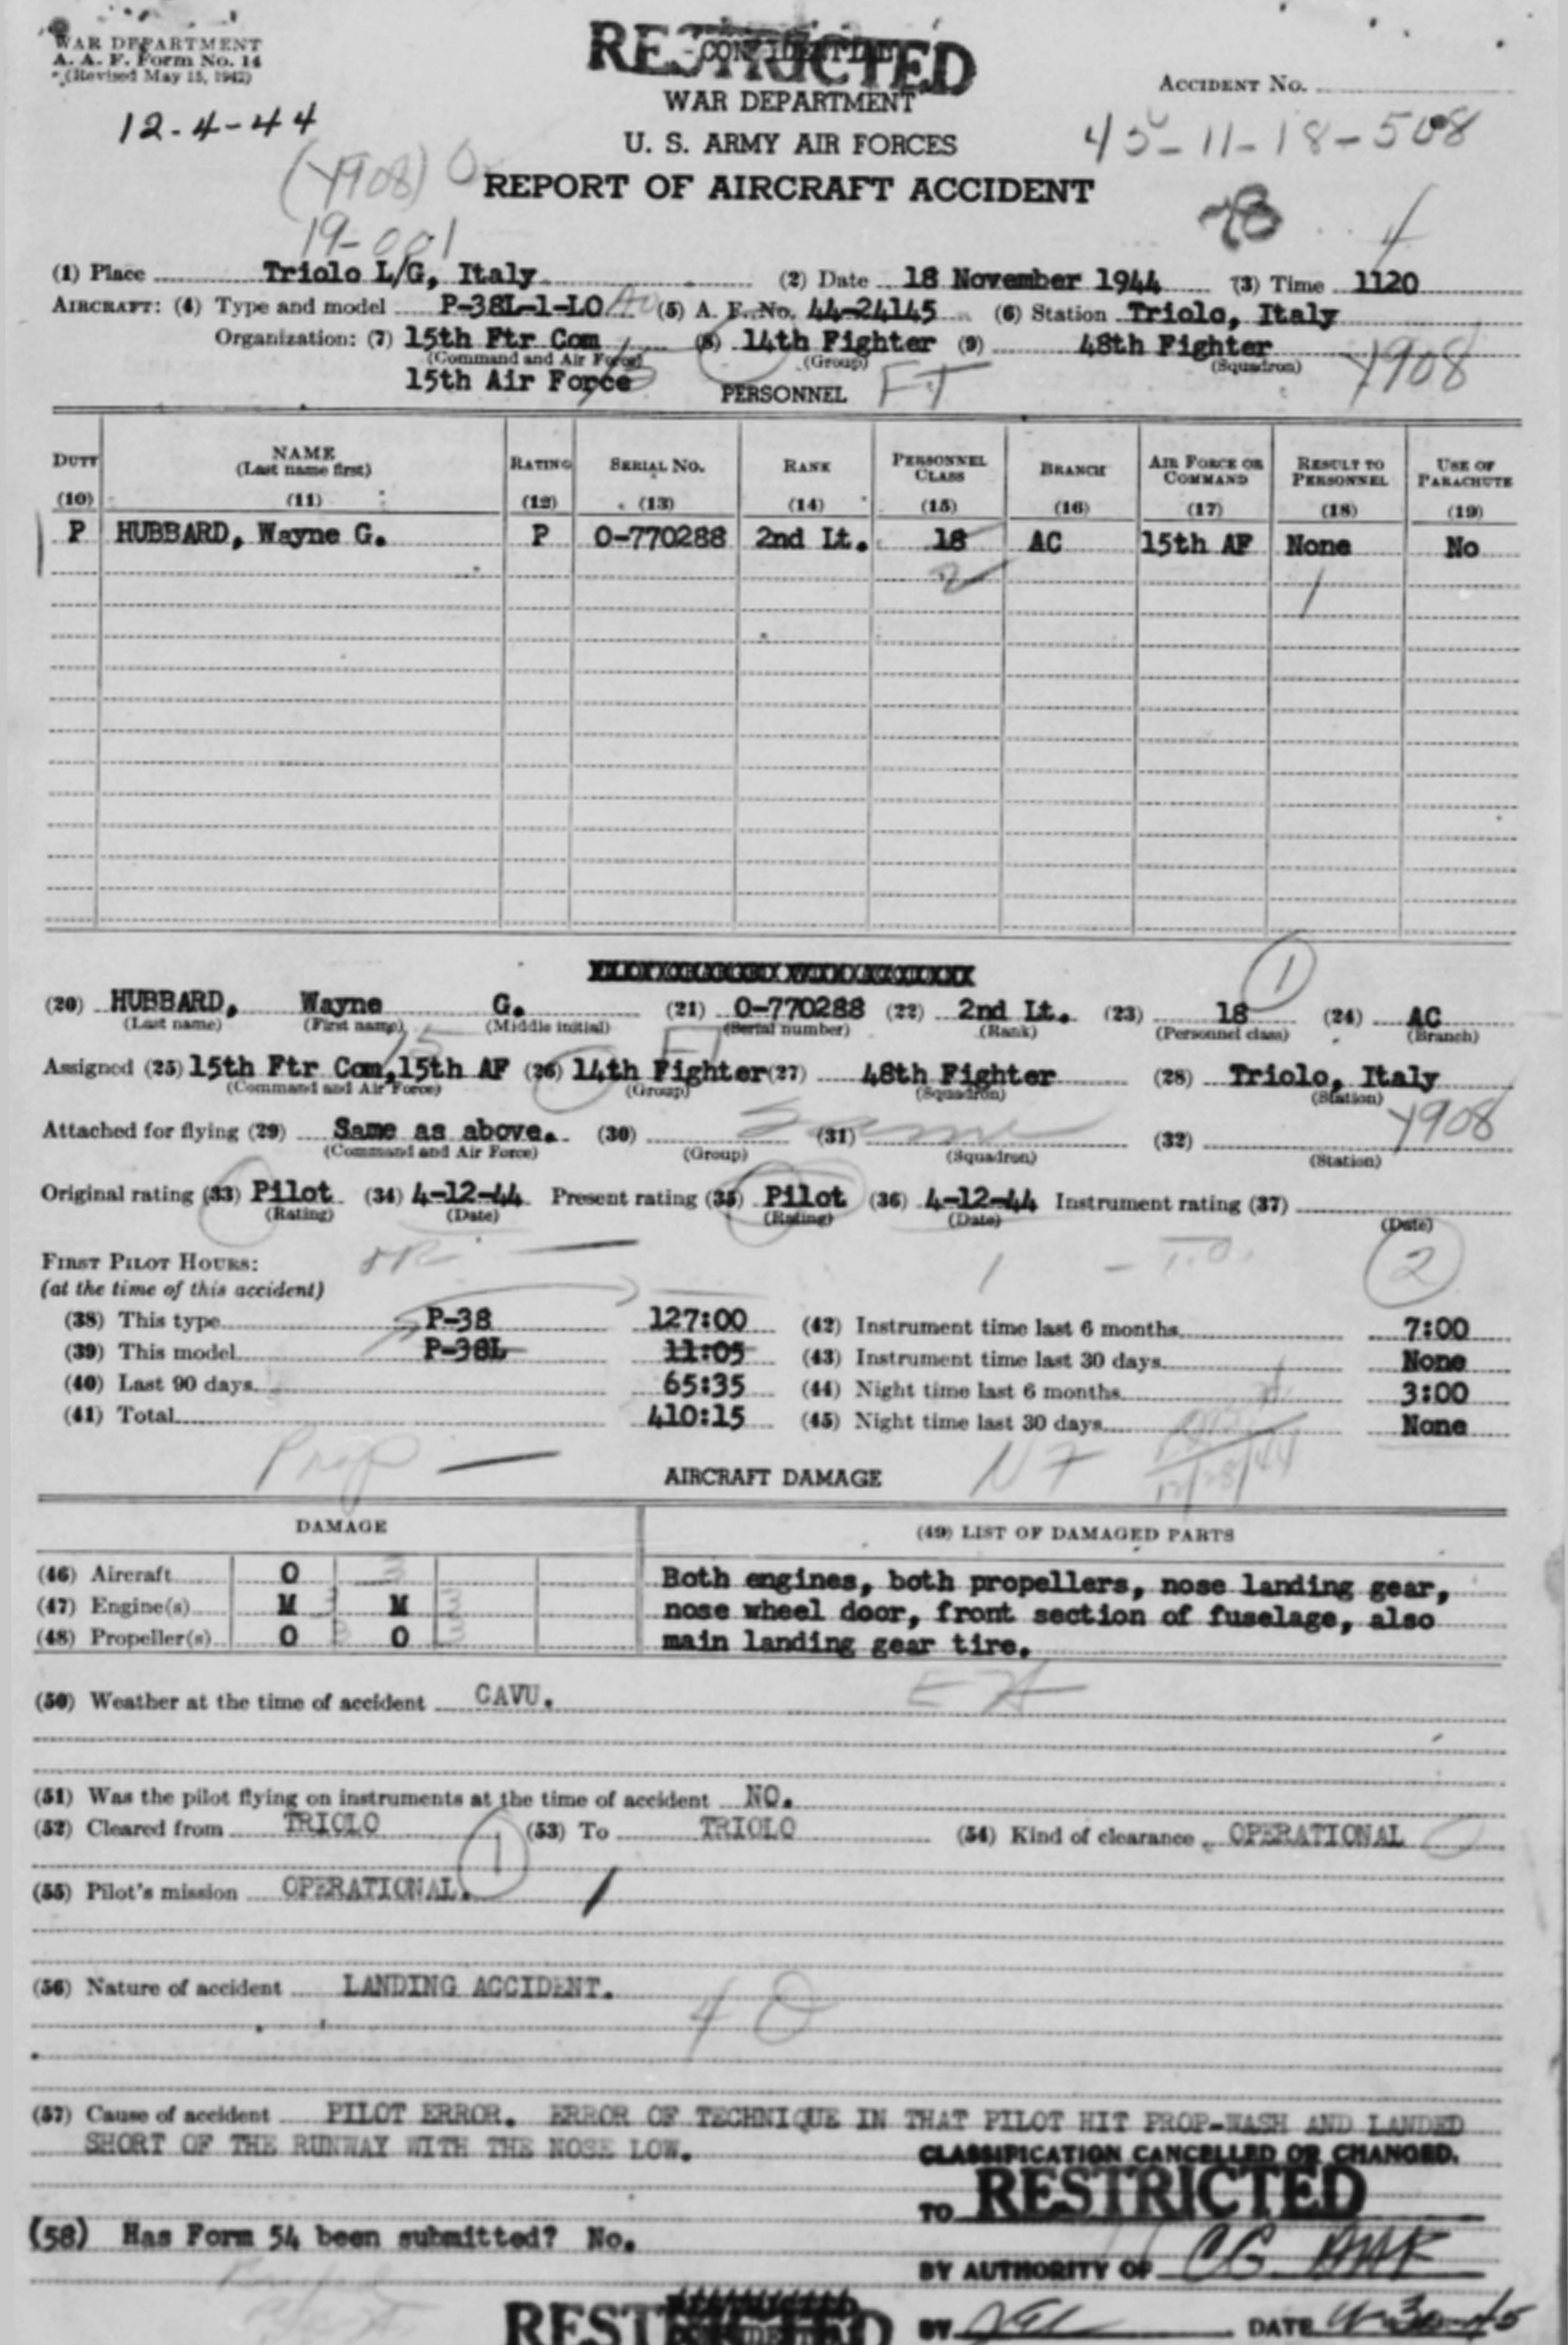 WAR DEPARTMENT
A. A. F. Form No. 14
(Revised May 15, 1942)
RESTRICTED
WAR DEPARTMENT
U. S. ARMY AIR FORCES
REPORT OF AIRCRAFT ACCIDENT
ACCIDENT No.
12-4-44
45-11-18-508
(Y908)
19-001
(1) Place Triolo L/G, Italy (2) Date 18 November 1944 (3) Time 1120
AIRCRAFT: (4) Type and model P-38L-1-LO (5) A. F. No. 44-24145 (6) Station Triolo, Italy
Organization: (7) 15th Ftr Com (8) 14th Fighter (9) 48th Fighter
(Command and Air Force) (Group) (Squadron) Y908
15th Air Force
PERSONNEL FT
DUTY NAME (Last name first) RATING SERIAL NO. RANK PERSONNEL CLASS BRANCH AIR FORCE OR COMMAND RESULT TO PERSONNEL USE OF PARACHUTE
(10) (11) (12) (13) (14) (15) (16) (17) (18) (19)
P HUBBARD, Wayne G. P O-770288 2nd Lt. 18 AC 15th AF None No
2 1
1
(20) HUBBARD, Wayne G. (21) O-770288 (22) 2nd Lt. (23) 18 (24) AC
(Last name) (First name) (Middle initial) (Serial number) (Rank) (Personnel class) (Branch)
15 FT
Assigned (25) 15th Ftr Com, 15th AF (26) 14th Fighter (27) 48th Fighter (28) Triolo, Italy
(Command and Air Force) (Group) (Squadron) (Station)
Attached for flying (29) Same as above. (30) Same (31) (32) Y908
(Command and Air Force) (Group) (Squadron) (Station)
Original rating (33) Pilot (34) 4-12-44 Present rating (35) Pilot (36) 4-12-44 Instrument rating (37)
(Rating) (Date) (Rating) (Date) (Date)
FIRST PILOT HOURS: 2
(at the time of this accident)
(38) This type P-38 127:00 (42) Instrument time last 6 months 7:00
(39) This model P-38L 11:05 (43) Instrument time last 30 days None
(40) Last 90 days 65:35 (44) Night time last 6 months 3:00
(41) Total 410:15 (45) Night time last 30 days None
Prop
12/28/44
AIRCRAFT DAMAGE
DAMAGE (49) LIST OF DAMAGED PARTS
(46) Aircraft O 3 Both engines, both propellers, nose landing gear,
(47) Engine(s) M 3 M 3 nose wheel door, front section of fuselage, also
(48) Propeller(s) O 3 O 3 main landing gear tire.
(50) Weather at the time of accident CAVU.
(51) Was the pilot flying on instruments at the time of accident NO.
(52) Cleared from TRIOLO (53) To TRIOLO (54) Kind of clearance OPERATIONAL
1
(55) Pilot's mission OPERATIONAL.
(56) Nature of accident LANDING ACCIDENT.
40
(57) Cause of accident PILOT ERROR. ERROR OF TECHNIQUE IN THAT PILOT HIT PROP-WASH AND LANDED
SHORT OF THE RUNWAY WITH THE NOSE LOW.
CLASSIFICATION CANCELLED OR CHANGED.
TO RESTRICTED
(58) Has Form 54 been submitted? No.
BY AUTHORITY OF CG AAF
RESTRICTED
BY DATE